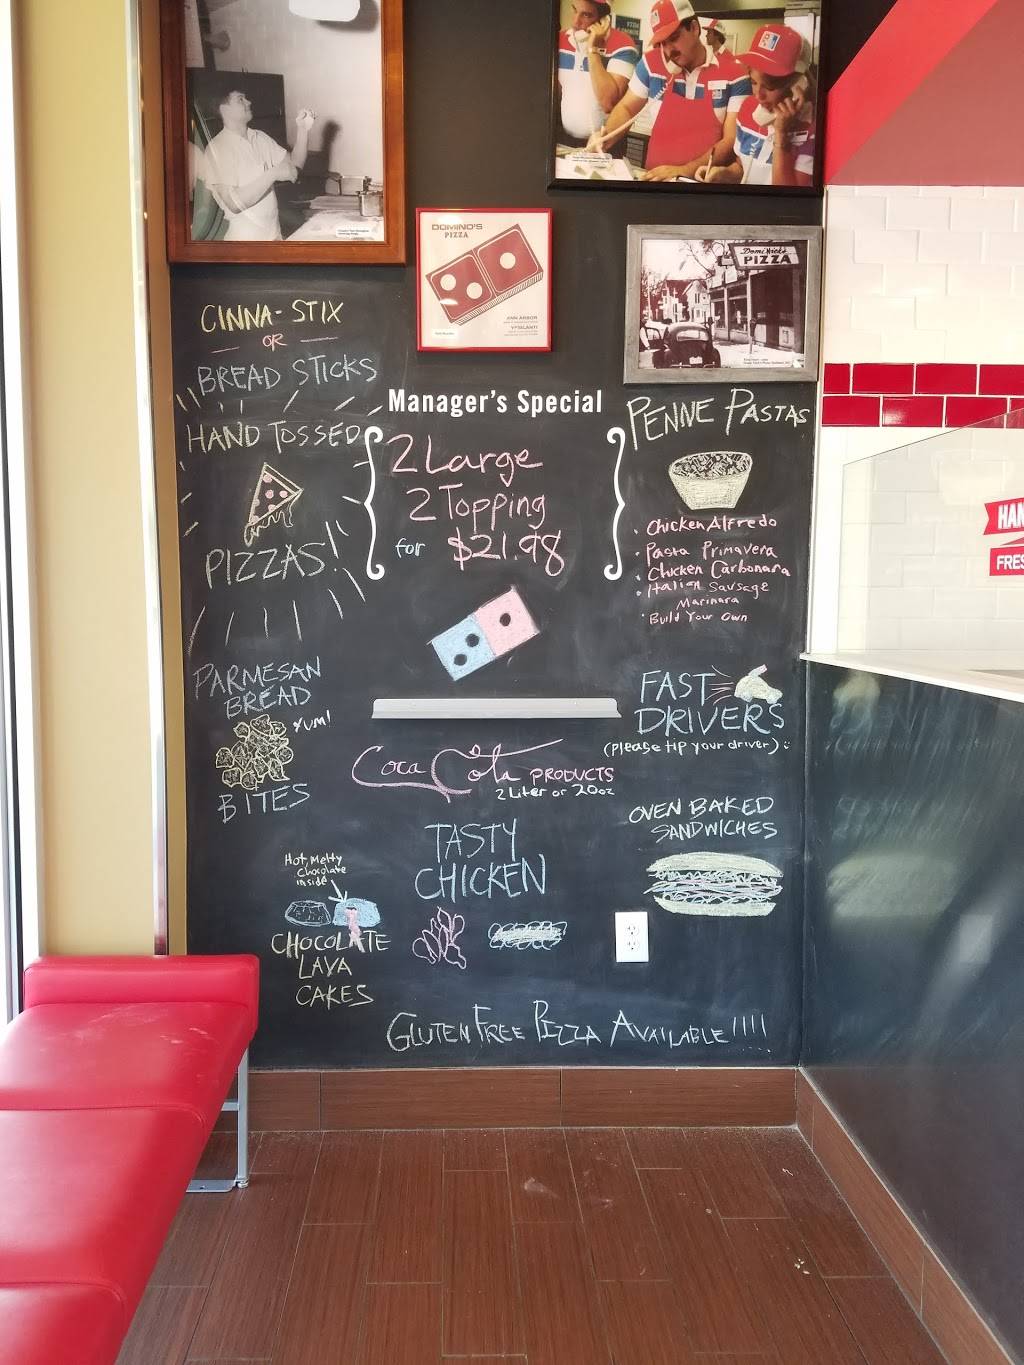 DOMINO'S
PIZZA
ANN ARBOR
YPSILANTI
DomiNick's
PIZZA
CINNA-STIX
OR
BREAD STICKS
HAND TOSSED
PIZZAS!
Manager's Special
2 Large
2 Topping
for $21.98
PENNE PASTAS
· Chicken Alfredo
· Pasta Primavera
· Chicken Carbonara
· Italian Sausage
Marinara
· Build Your Own
HAN
FRES
PARMESAN
BREAD
YUM!
BITES
FAST
DRIVERS
(please tip your driver):
Coca Cola PRODUCTS
2 Liter or 20oz
OVEN BAKED
SANDWICHES
TASTY
CHICKEN
Hot, Melty
Chocolate
inside
CHOCOLATE
LAVA
CAKES
GLUTEN FREE PIZZA AVAILABLE!!!!